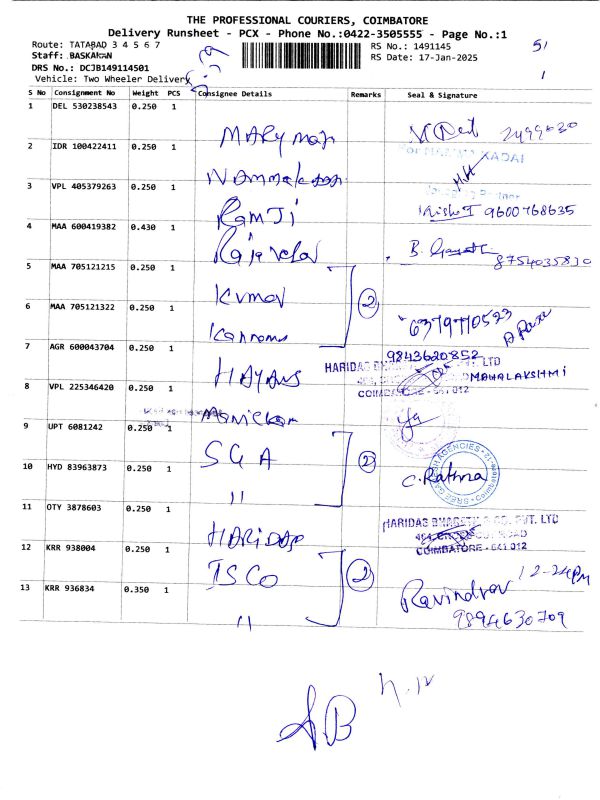 THE PROFESSIONAL COURIERS, COIMBATORE
Delivery Runsheet - PCX - Phone No.:0422-3505555 - Page No.:1
Route: TATABAD 3 4 5 6 7
RS No.: 1491145
Staff: BASKARAN
RS Date: 17-Jan-2025
DRS No.: DCJB149114501
Vehicle: Two Wheeler Delivery
S No Consignment No Weight PCS Consignee Details Remarks Seal & Signature
1 DEL 530238543 0.250 1 MARY 2499030
2 IDR 100422411 0.250 1 KADAI
3 VPL 405379263 0.250 1 RAMJi 9600768635
4 MAA 600419382 0.430 1 Rajavel B. 8754035830
5 MAA 705121215 0.250 1 KUMAR 2
6 MAA 705121322 0.250 1 6379770523
7 AGR 600043704 0.250 1 9843620852
HARIDAS PVT. LTD
MAHALAKSHMI
COIMBATORE - 641 012
8 VPL 225346420 0.250 1 Manickam
9 UPT 6081242 0.250 1 SGA 2
10 HYD 83963873 0.250 1 " C. Rathna
SREE GANESH AGENCIES
11 OTY 3878603 0.250 1 HARIDAS
HARIDAS & CO. PVT. LTD
COIMBATORE - 641 012
12 KRR 938004 0.250 1 ISCO 2 12-24PM
13 KRR 936834 0.350 1 " Ravindran
9894630709